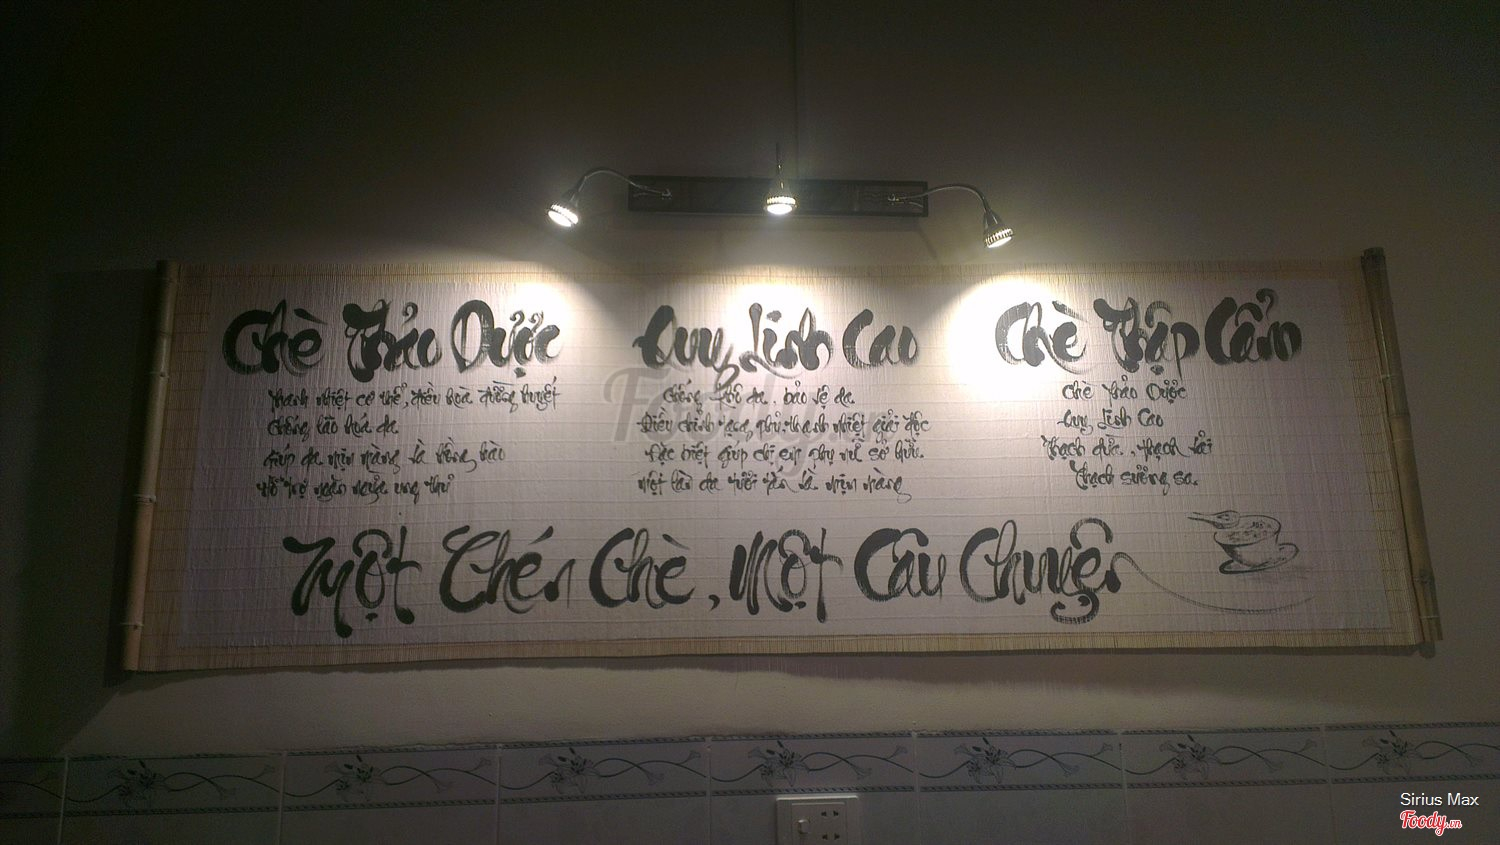 Chè Thảo Dược
Thanh nhiệt cơ thể, điều hòa đường huyết
Chống lão hóa da
Giúp da mịn màng và hồng hào
Hỗ trợ ngăn ngừa ung thư
Quy Linh Cao
Chống khô da, bảo vệ da
Điều chỉnh nội tạng phủ, thanh nhiệt giải độc
Đặc biệt giúp chị em phụ nữ sở hữu
một làn da tươi tắn và mịn màng
Chè Thập Cẩm
Chè Thảo Dược
Quy Linh Cao
Thạch dừa, thạch vải
Thạch sương sa
Một Chén Chè, Một Câu Chuyện
Foody.vn
Sirius Max
Foody.vn